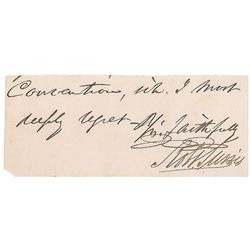 Convention, wh. I most
deeply regret
Yours faithfully